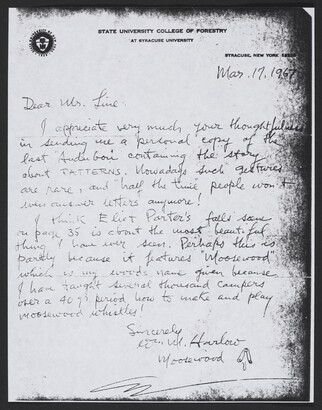 STATE UNIVERSITY COLLEGE OF FORESTRY
AT SYRACUSE UNIVERSITY
SYRACUSE, NEW YORK
Mar. 17, 1967
Dear Mr. Line:
I appreciate very much your thoughtfulness
in sending me a personal copy of the
last Audubon containing the story
about PATTERNS. Nowadays such gestures
are rare, and half the time people won't
even answer letters anymore!
I think Eliot Porter's falls scene
on page 35 is about the most beautiful
thing I have ever seen. Perhaps this is
partly because it features "Moosewood"
which is my woods name given because
I have taught several thousand campers
over a 40 yr period how to make and play
moosewood whistles!
Sincerely
Wm. M. Harlow
Moosewood